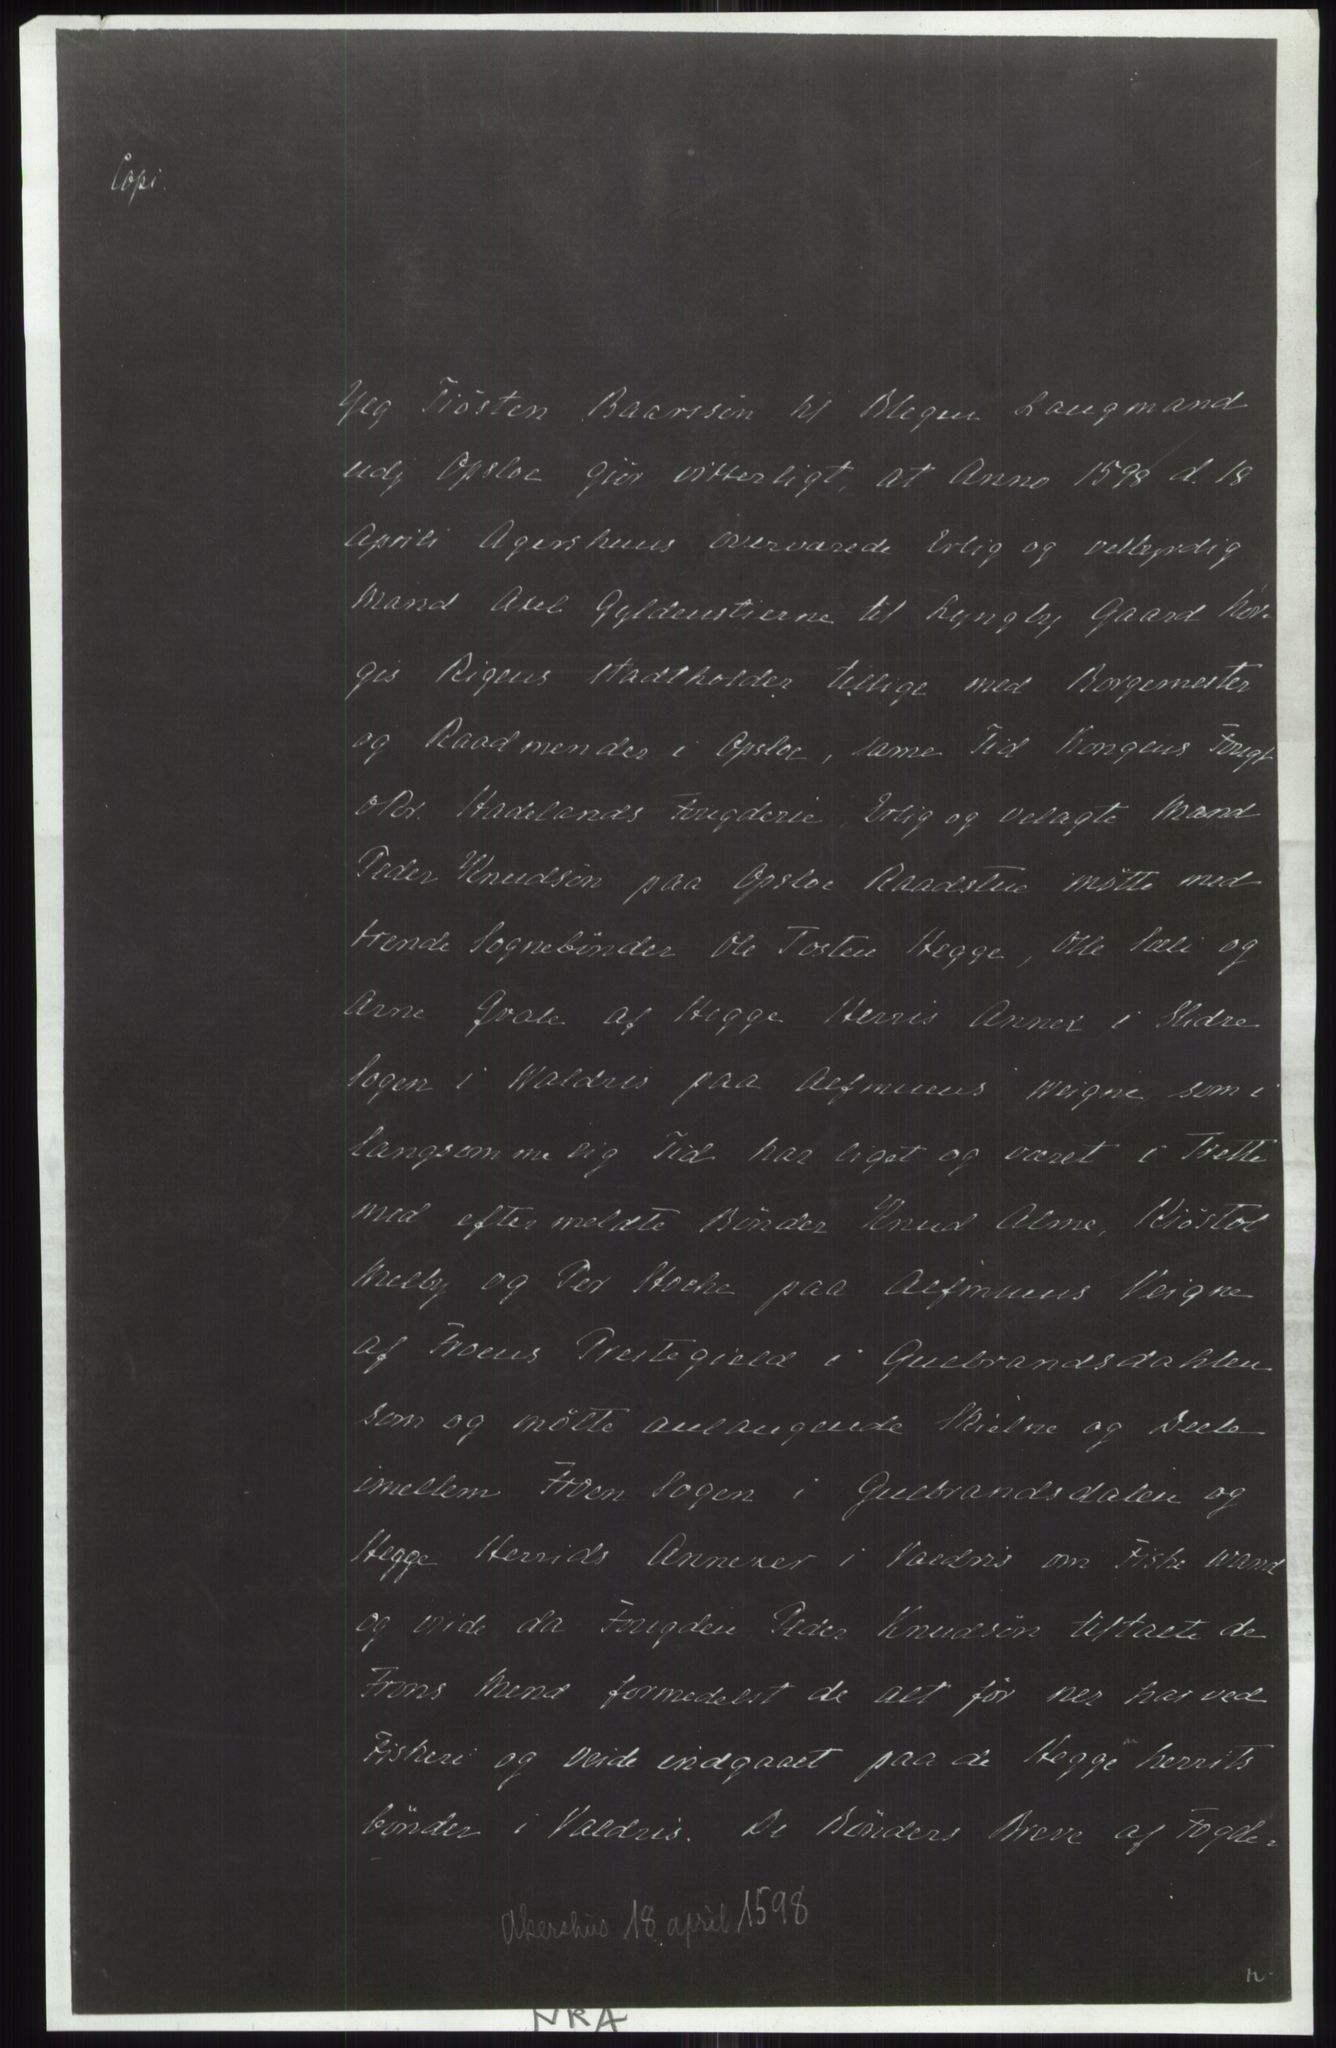 Copi.
Jeg Tiösten Baarssön til Blegen Laugmand
udj Opsloe giör vitterligt, at Anno 1598 d. 18
Aprili Agershuus overværede Erlig og velbyrdig
Mand Axel Gyldenstierne til Lyngby Gaard Nor-
gis Rigens Stadtholder tillige med Borgemester
og Raadmender i Opsloe, same Tid Kongens Fougt
Hadelands Fougderie, Erlig og velagte Mand
Peder Knudsön paa Opsloe Raadstue mötte med
trende Sognebönder Ole Tosten Hegge, Olle Læli og
Arne Qvale af Hegge Herris Annex i Slidre
Sogen i Waldris paa Almuens Weigne som i
langsommelig Tid har liget og været i Trette
med eftermeldte Bönder Knud Alme, Kiöstol
Melby og Per Hocke paa Almuens Veigne
af Froens Prestegield i Gulbrandsdahlen
som og mötte anlangende Skielne og Deele
imellem Froen Sogen i Gulbrandsdalen og
Hegge Herrids Annexer i Valdris om Fiske Wand
og Veide da Fougden Peder Knudsön tiltalte de
Frons Mend formedelst de alt för ner har ved
Fiskeri og Veide indgaaet paa de Hegge herrits
bönder i Valdris. De Bönders Breve af Fogde-
Akershus 18 april 1598
NRA